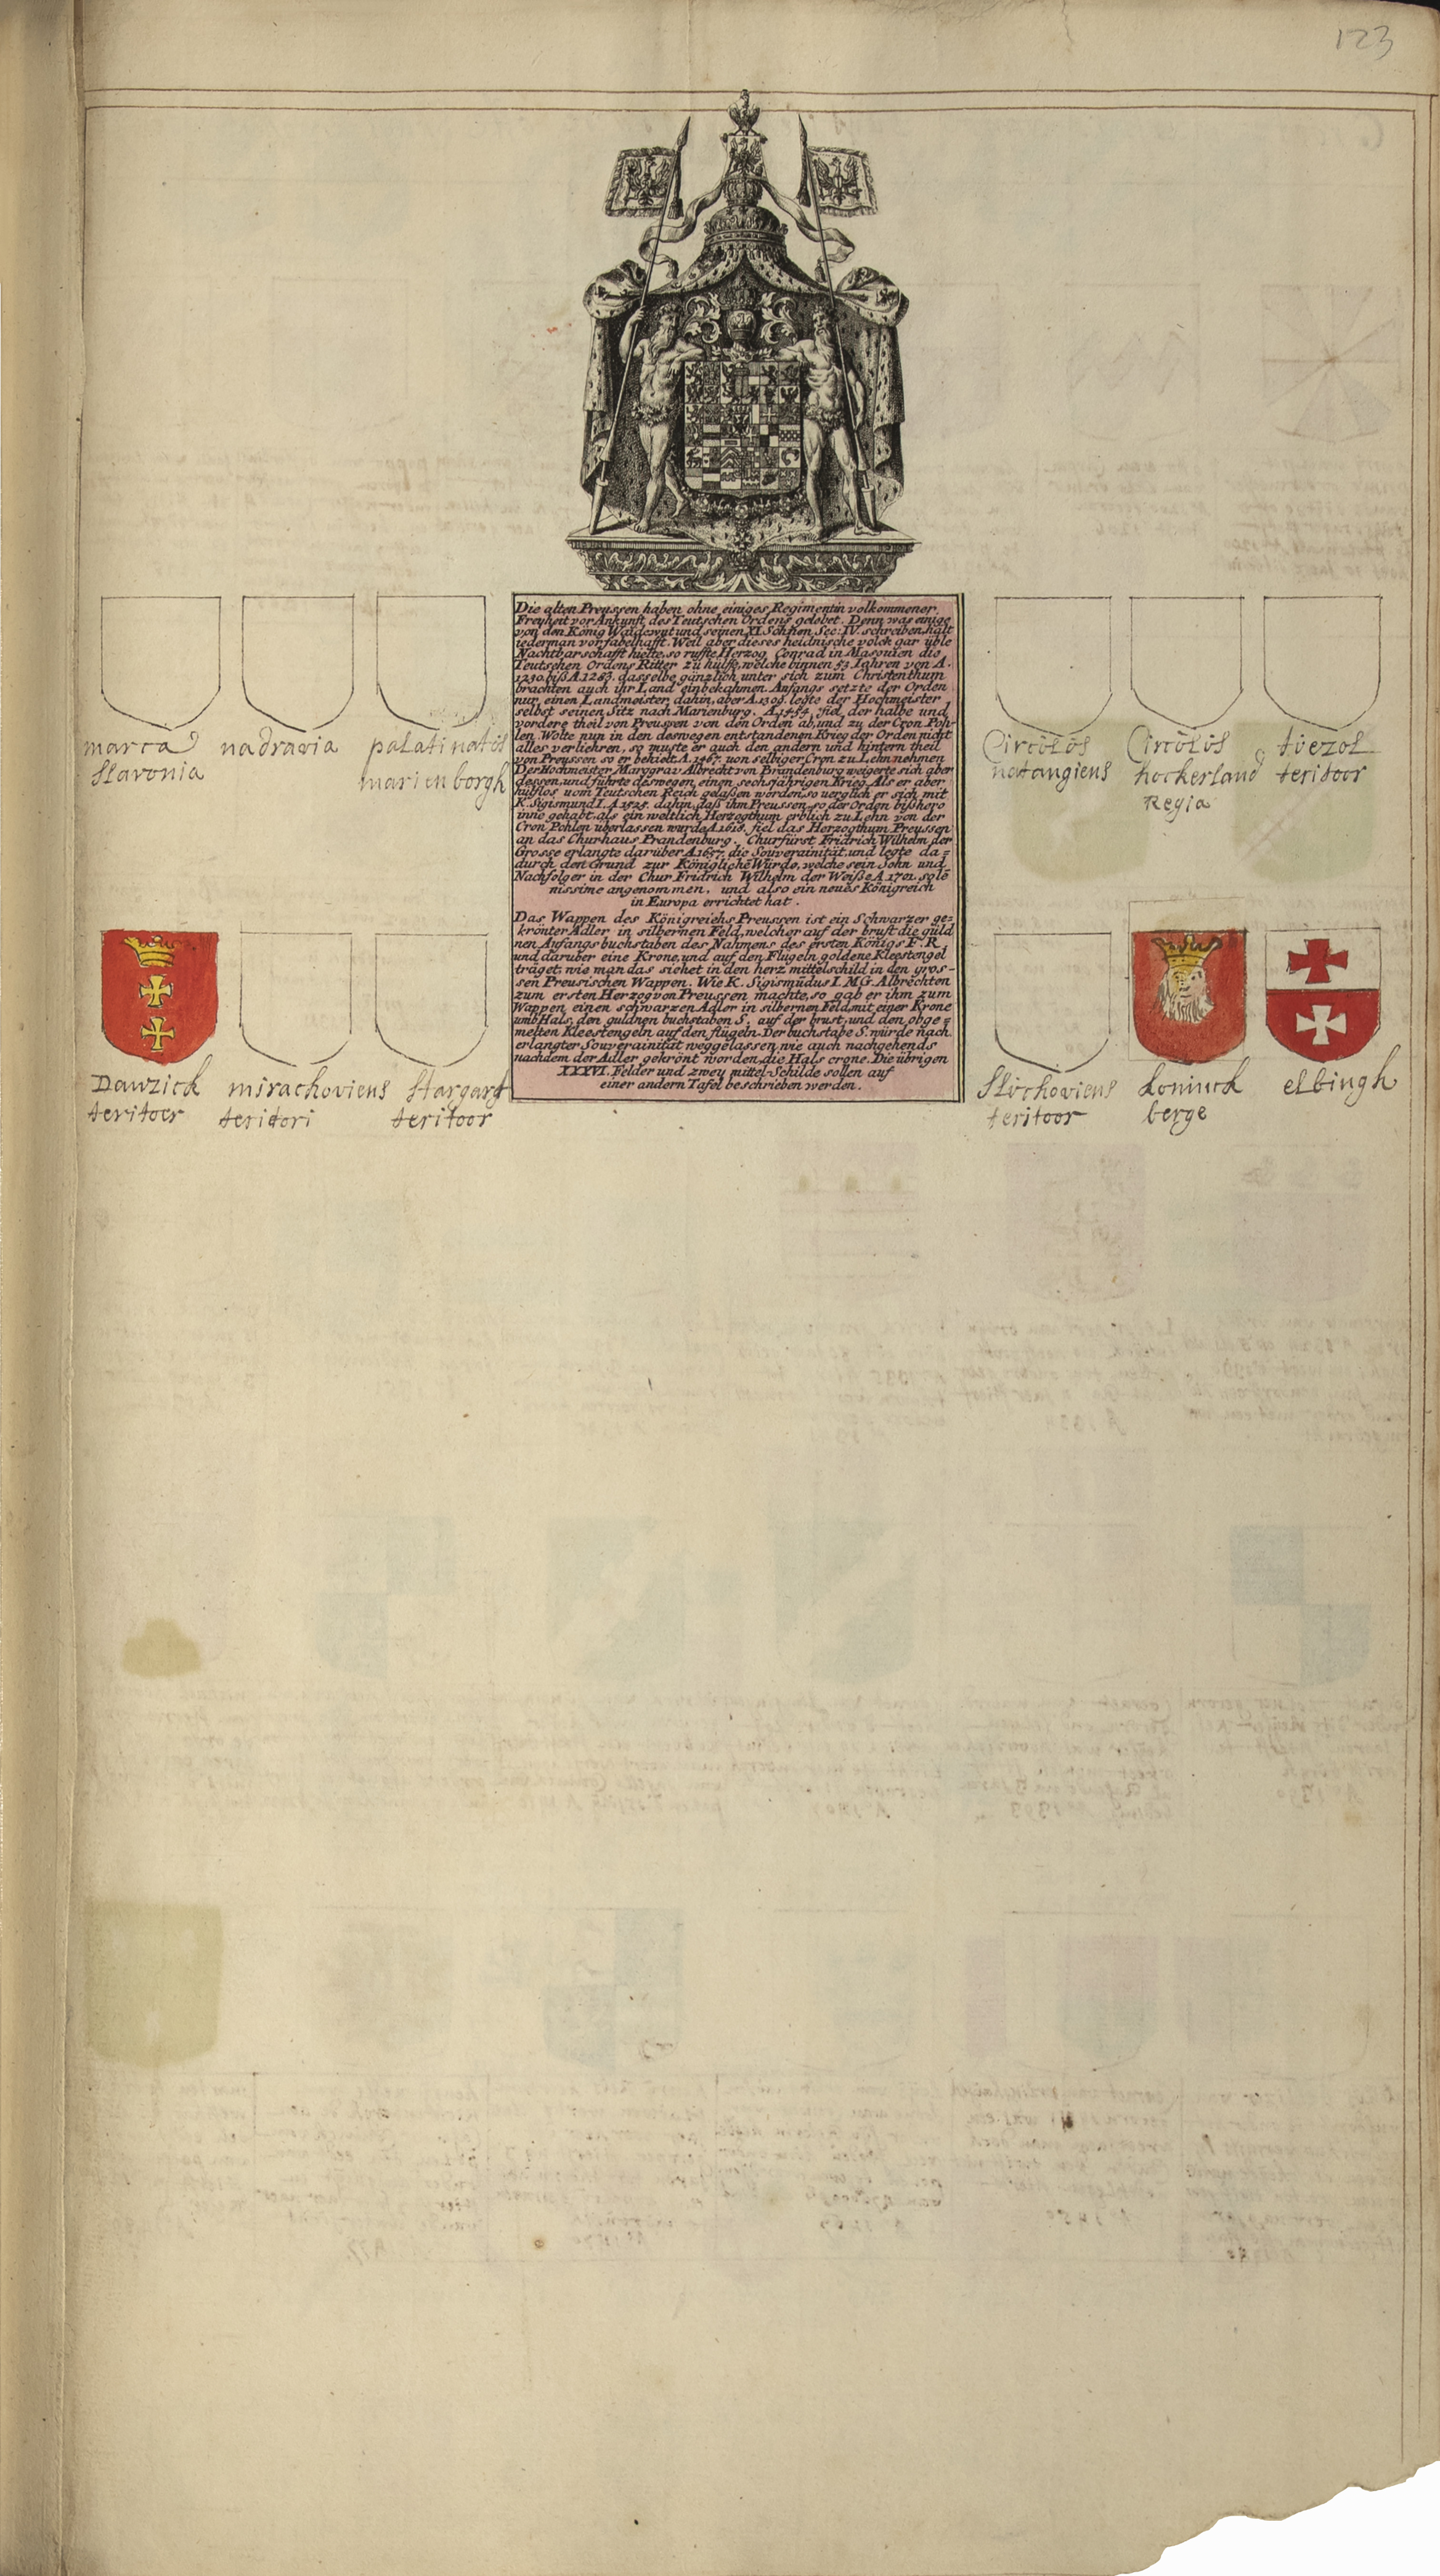 123
Die alten Preussen haben ohne einiges Regiment in volkommener
Freyheit vor Ankunft des Teutschen Ordens gelebet. Denn was einige
von den König Waidewut und seinen XI. Söhnen Sec: IV. schreiben, hält
iederman vor fabelhafft. Weil aber dieses heidnische volck gar üble
Nachtbarschafft hielte, so ruffte Herzog Conrad in Masovien die
Teutschen Ordens Ritter zu hülffe, welche binnen 53 Jahren von A.
1230. biß A. 1283. dasselbe gänzlich unter sich zum Christenthum
brachten auch ihr Land einbekahmen. Anfangs setzte der Orden
nur einen Landmeister dahin, aber A. 1309. legte der Hochmeister
selbst seinen Sitz nach Marienburg. A. 1454. fiel der halbe und
vordere theil von Preussen von den Orden ab, und zu der Cron Poh-
len. Wolte nun in den deswegen entstandenen Krieg der Orden nicht
alles verliehren, so muste er auch den andern und hintern theil
von Preussen so er behielt A. 1467. von selbiger Cron zu Lehn nehmen
Der Hochmeister Marggrav Albrecht von Brandenburg weigerte sich aber
dessen, und führte deswegen einen sechsjährigen Krieg. Als er aber
hülflos vom Teutschen Reich gelaßen worden, so verglich er sich mit
K. Sigismund I. A 1525. dahin, daß ihm Preussen, so der Orden bißhero
inne gehabt, als ein weltlich Herzogthum erblich zu Lehn von der
Cron Pohlen überlassen wurde. A 1618. fiel das Herzogthum Preussen
an das Churhaus Brandenburg. Churfürst Fridrich Wilhelm der
Grosse erlangte darüber A 1657. die Souverainität, und legte da=
durch den Grund zur Königlichē Würde, welche sein Sohn und
Nachfolger in der Chur Fridrich Wilhelm der Weiße A 1701. solē
nissime angenommen, und also ein neues Königreich
in Europa errichtet hat.
Das Wappen des Königreichs Preussen ist ein Schwarzer ge=
krönter Adler in silbernen Feld, welcher auf der brust die güld
nen Anfangs buchstaben des Nahmens des ersten Königs F. R.
und darüber eine Krone, und auf den Flügeln goldene Kleestengel
träget, wie man das siehet in den herz mittelschild in den gros-
sen Preusischen Wappen. Wie K. Sigismūdus I. M.G. Albrechten
zum ersten Herzog von Preussen machte, so gab er ihm zum
Wappen einen schwarzen Adler in silbernen Feld, mit einer Krone
umb Hals, den guldnen buchstaben S. auf der brust, und den obge=
melten Kleestengeln auf den flügeln. Der buchstabe S. würde nach
erlangter Souverainität weggelassen, wie auch nachgehends
nachdem der Adler gekrönt worden, die Hals crone. Die übrigen
XXXVI. Felder und zwey mittel-Schilde sollen auf
einer andern Tafel beschrieben werden.
marca
slavonia
nadravia
palatinatos
marienborgh
Circolos
natangiens
Circolos
hockerland
Regia
tiezol
teritoor
Dawzick
teritoer
mirachoviens
teritori
stargart
teritoor
slochoviens
teritoor
koninck
berge
elbingh